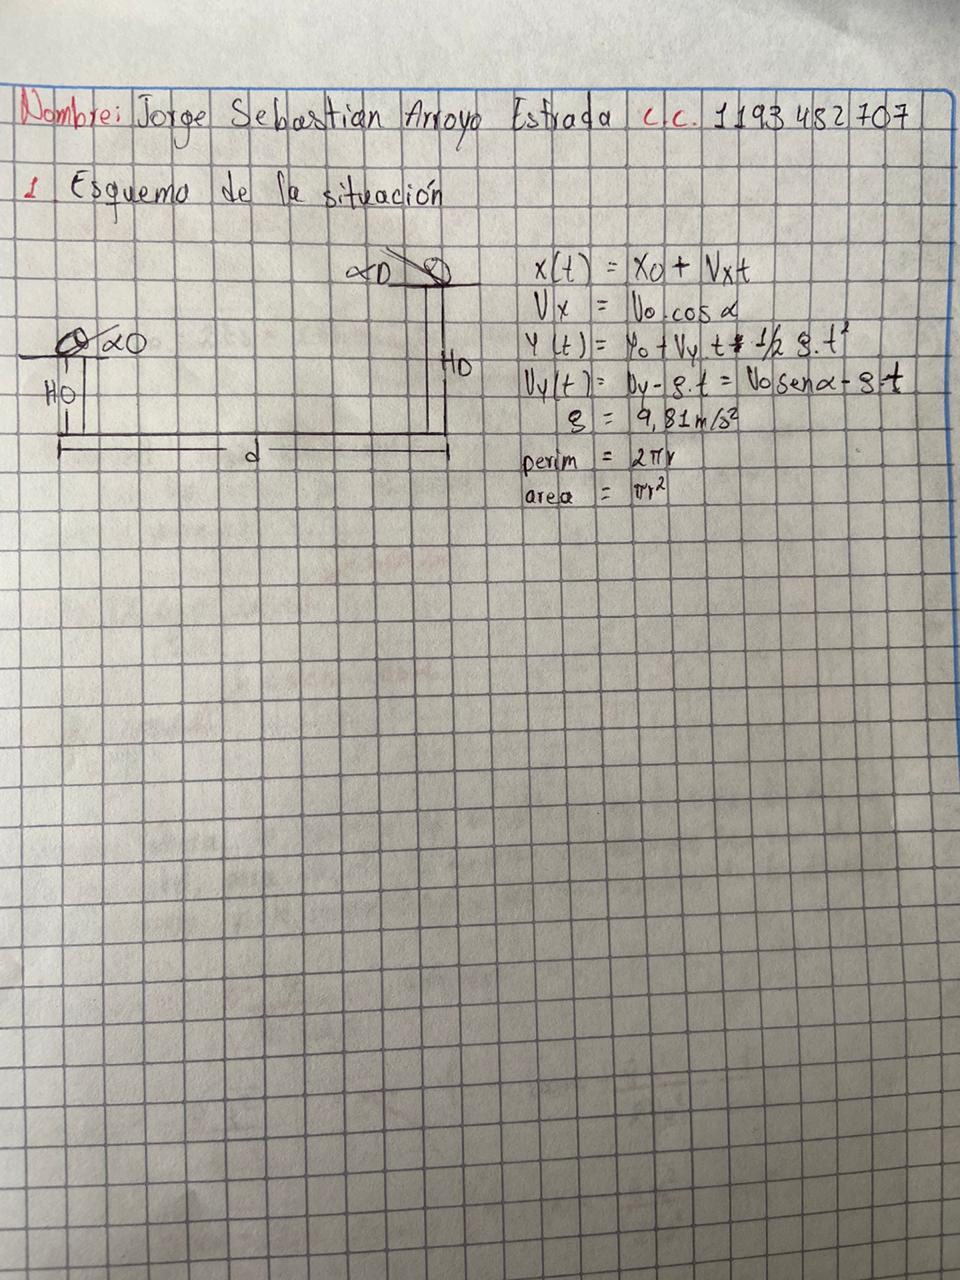 Nombre: Jorge Sebastian Arroyo Estrada c.c. 1193 482 707
1 Esquema de la situación
αD
αO
HO
HD
d
x(t) = X0 + Vxt
Vx = Vo.cos α
Y(t) = Yo + Vy.t - 1/2 g.t²
Vy(t) = Vy - g.t = Vo senα - g.t
g = 9,81m/s²
perim = 2πr
area = πr²